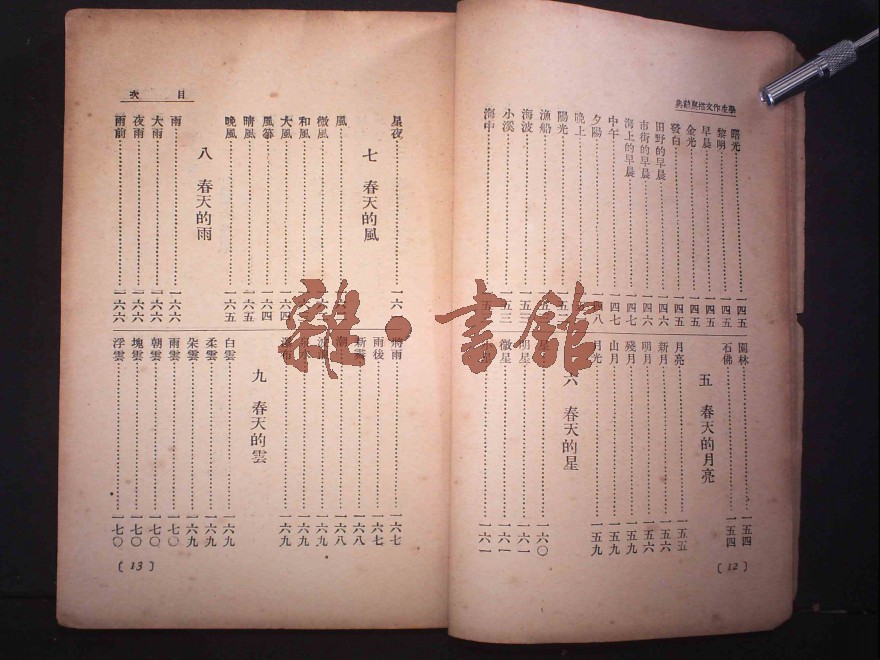 學生作文描寫辭典
曙光 一四五
黎明 一四五
早晨 一四五
金光 一四五
發白 一四五
田野的早晨 一四六
市街的早晨 一四六
海上的早晨 一四七
中午 一四七
夕陽 一四八
晚上
陽光
漁船
海波 一五三
小溪 一五三
海中
園林 一五四
石佛 一五四
五 春天的月亮
月亮 一五五
新月 一五六
明月 一五六
殘月 一五九
山月 一五九
月光 一五九
六 春天的星
一六〇
明星 一六一
微星 一六一
一六一
〔12〕
目次
星夜
七 春天的風
風
微風
和風
大風 一六四
風箏 一六四
晴風 一六五
晚風 一六五
八 春天的雨
雨 一六六
大雨 一六六
夜雨 一六六
雨前 一六六
將雨 一六七
雨後 一六七
新霽 一六八
潮 一六八
一六九
一六九
瀑布 一六九
九 春天的雲
白雲 一六九
柔雲 一六九
朵雲 一六九
雨雲 一七〇
朝雲 一七〇
塊雲 一七〇
浮雲 一七〇
〔13〕
雜·書館